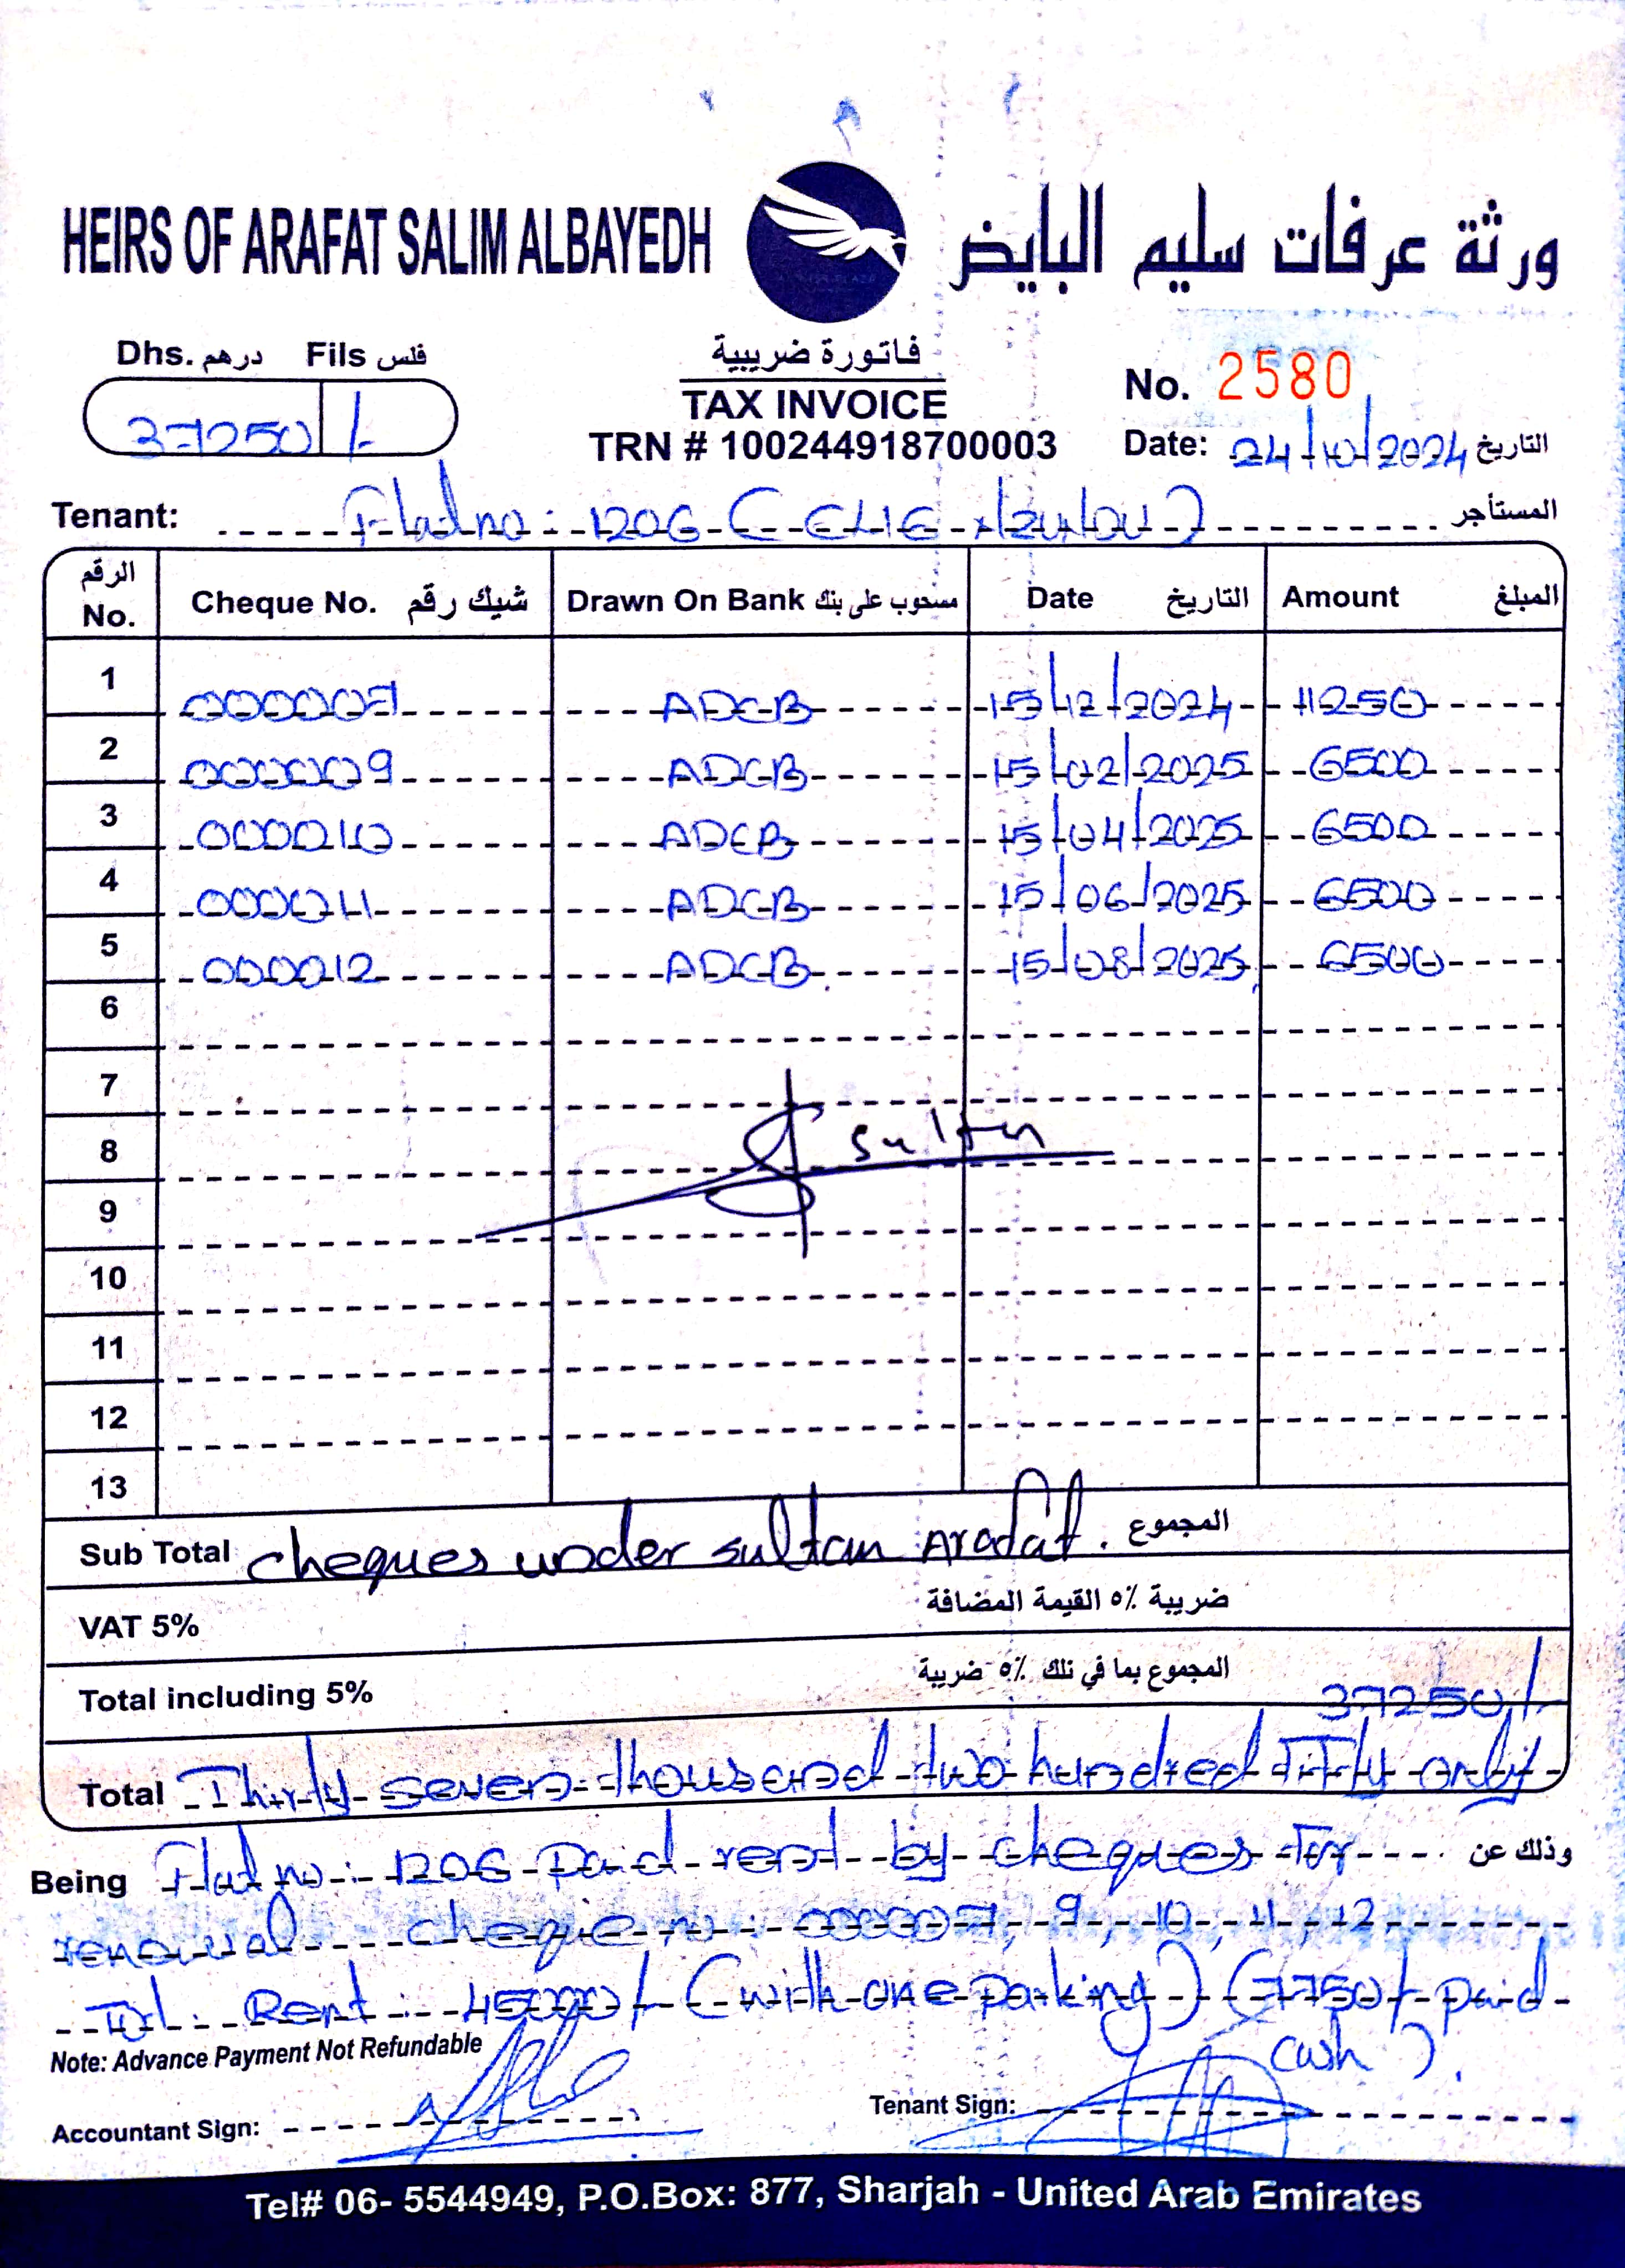 HEIRS OF ARAFAT SALIM ALBAYEDH ورثة عرفات سليم البايض
Dhs. درهم Fils فلس
37250 /-
فاتورة ضريبية
TAX INVOICE
TRN # 100244918700003
No. 2580
Date: 24/10/2024 التاريخ
Tenant: Flat no: 1206 (ELIE المستأجر
الرقم No. Cheque No. شيك رقم Drawn On Bank مسحوب على بنك Date التاريخ Amount المبلغ
1 0000007 ADCB 15/12/2024 11250
2 000009 ADCB 15/02/2025 6500
3 000010 ADCB 15/04/2025 6500
4 000011 ADCB 15/06/2025 6500
5 000012 ADCB 15/08/2025 6500
6
7
8 Sultan
9
10
11
12
13
Sub Total cheques under sultan Arafat. المجموع
VAT 5% ضريبة ٥% القيمة المضافة
Total including 5% المجموع بما في ذلك ٥% ضريبة 37250/-
Total Thirty seven thousand two hundred Fifty only
Being Flat no: 1206 paid rent by cheques For وذلك عن
renewal cheque no: 000007, 9, 10, 11, 12
Tot: Rent: 45000/- (with one parking) (7750/- paid
cash).
Note: Advance Payment Not Refundable
Accountant Sign:
Tenant Sign:
Tel# 06- 5544949, P.O.Box: 877, Sharjah - United Arab Emirates